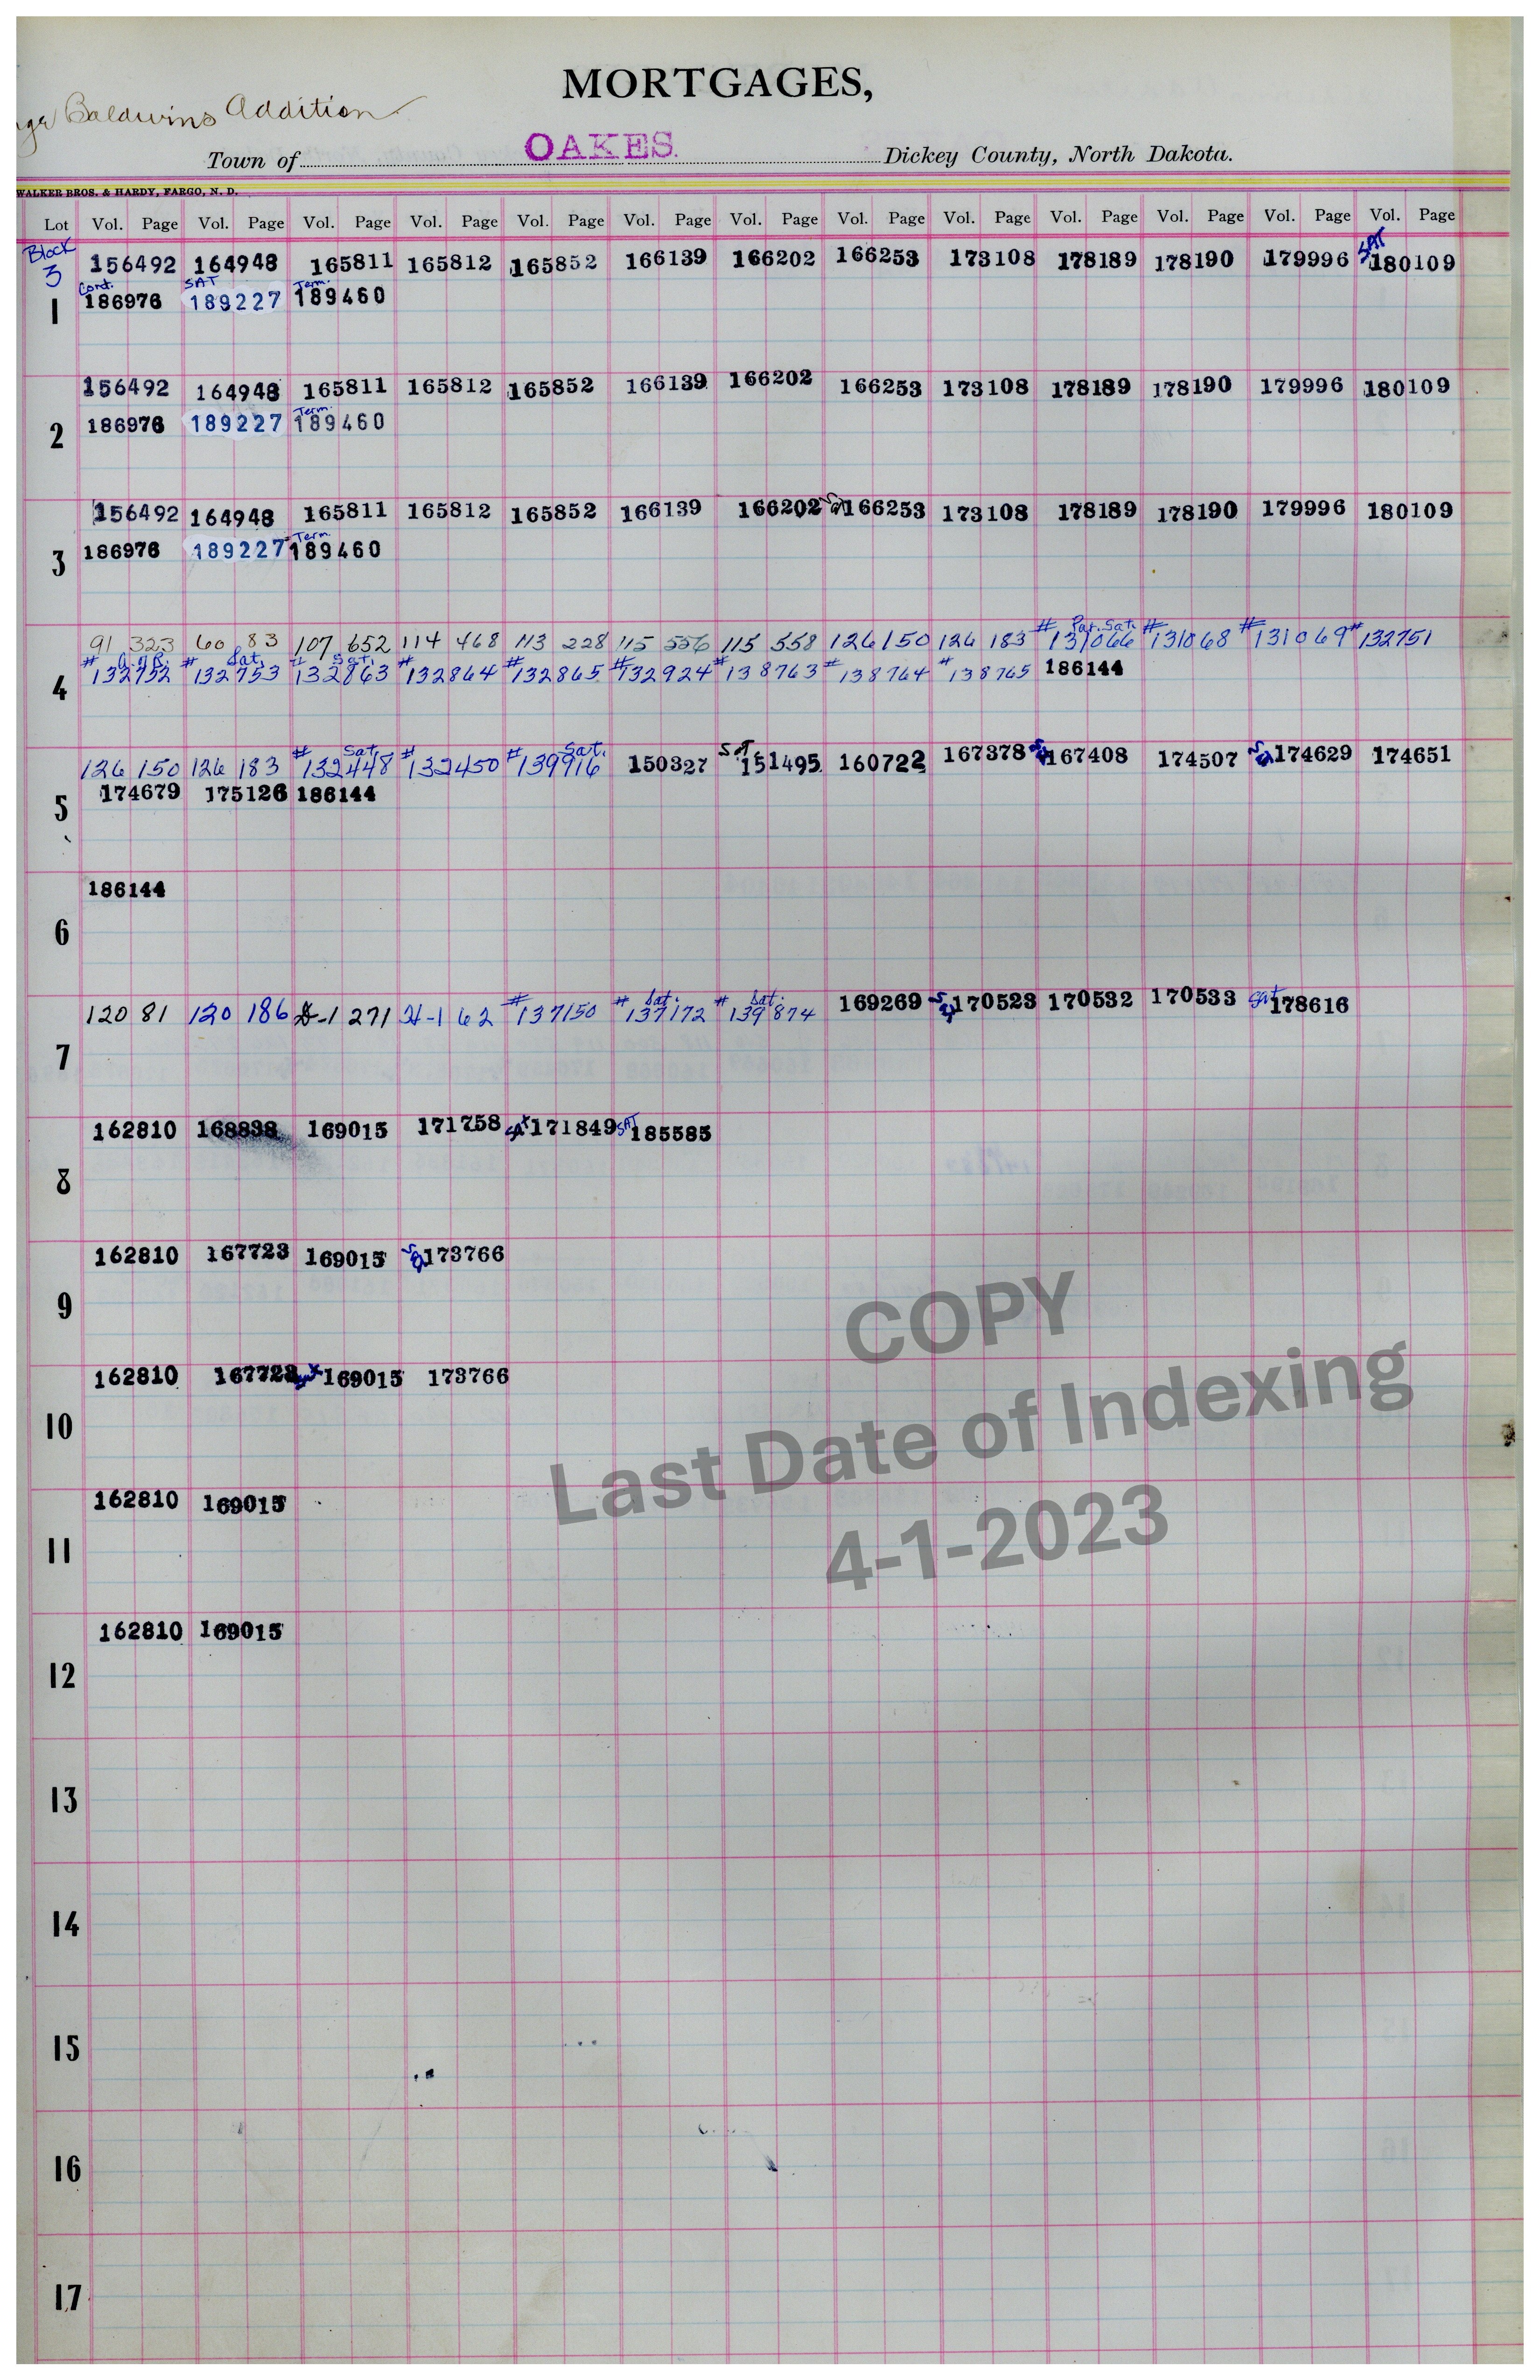 MORTGAGES,
Baldwins Addition
Town of OAKES. Dickey County, North Dakota.
WALKER BROS. & HARDY, FARGO, N. D.
Lot Vol. Page Vol. Page Vol. Page Vol. Page Vol. Page Vol. Page Vol. Page Vol. Page Vol. Page Vol. Page Vol. Page Vol. Page Vol. Page
Block 3 156492 164948 165811 165812 165852 166139 166202 166253 173108 178189 178190 179996 SAT 180109
1 Cont. 186976 SAT 189227 Term. 189460
156492 164948 165811 165812 165852 166139 166202 166253 173108 178189 178190 179996 180109
2 186976 189227 Term. 189460
156492 164948 165811 165812 165852 166139 166202 166253 173108 178189 178190 179996 180109
3 186976 189227 Term. 189460
91 323 60 83 107 652 114 468 113 228 115 556 115 558 126 150 126 183 # Par. Sat. 131066 #131068 #131069 #132751
4 #132752 # Sat. 132753 # Sat. 132863 #132864 #132865 #132924 #138763 #138764 #138765 186144
126 150 126 183 # Sat. 132448 #132450 # Sat. 139916 150327 SAT 151495 160722 167378 167408 174507 174629 174651
5 174679 175126 186144
186144
6
120 81 120 186 271 62 #137150 # Sat. 137172 # Sat. 139874 169269 170523 170532 170533 Sat 178616
7
162810 168838 169015 171758 SAT 171849 SAT 185585
8
162810 167723 169015 173766
9
162810 167723 169015 173766
10
162810 169015
11
162810 169015
12
13
14
15
16
17
COPY
Last Date of Indexing
4-1-2023